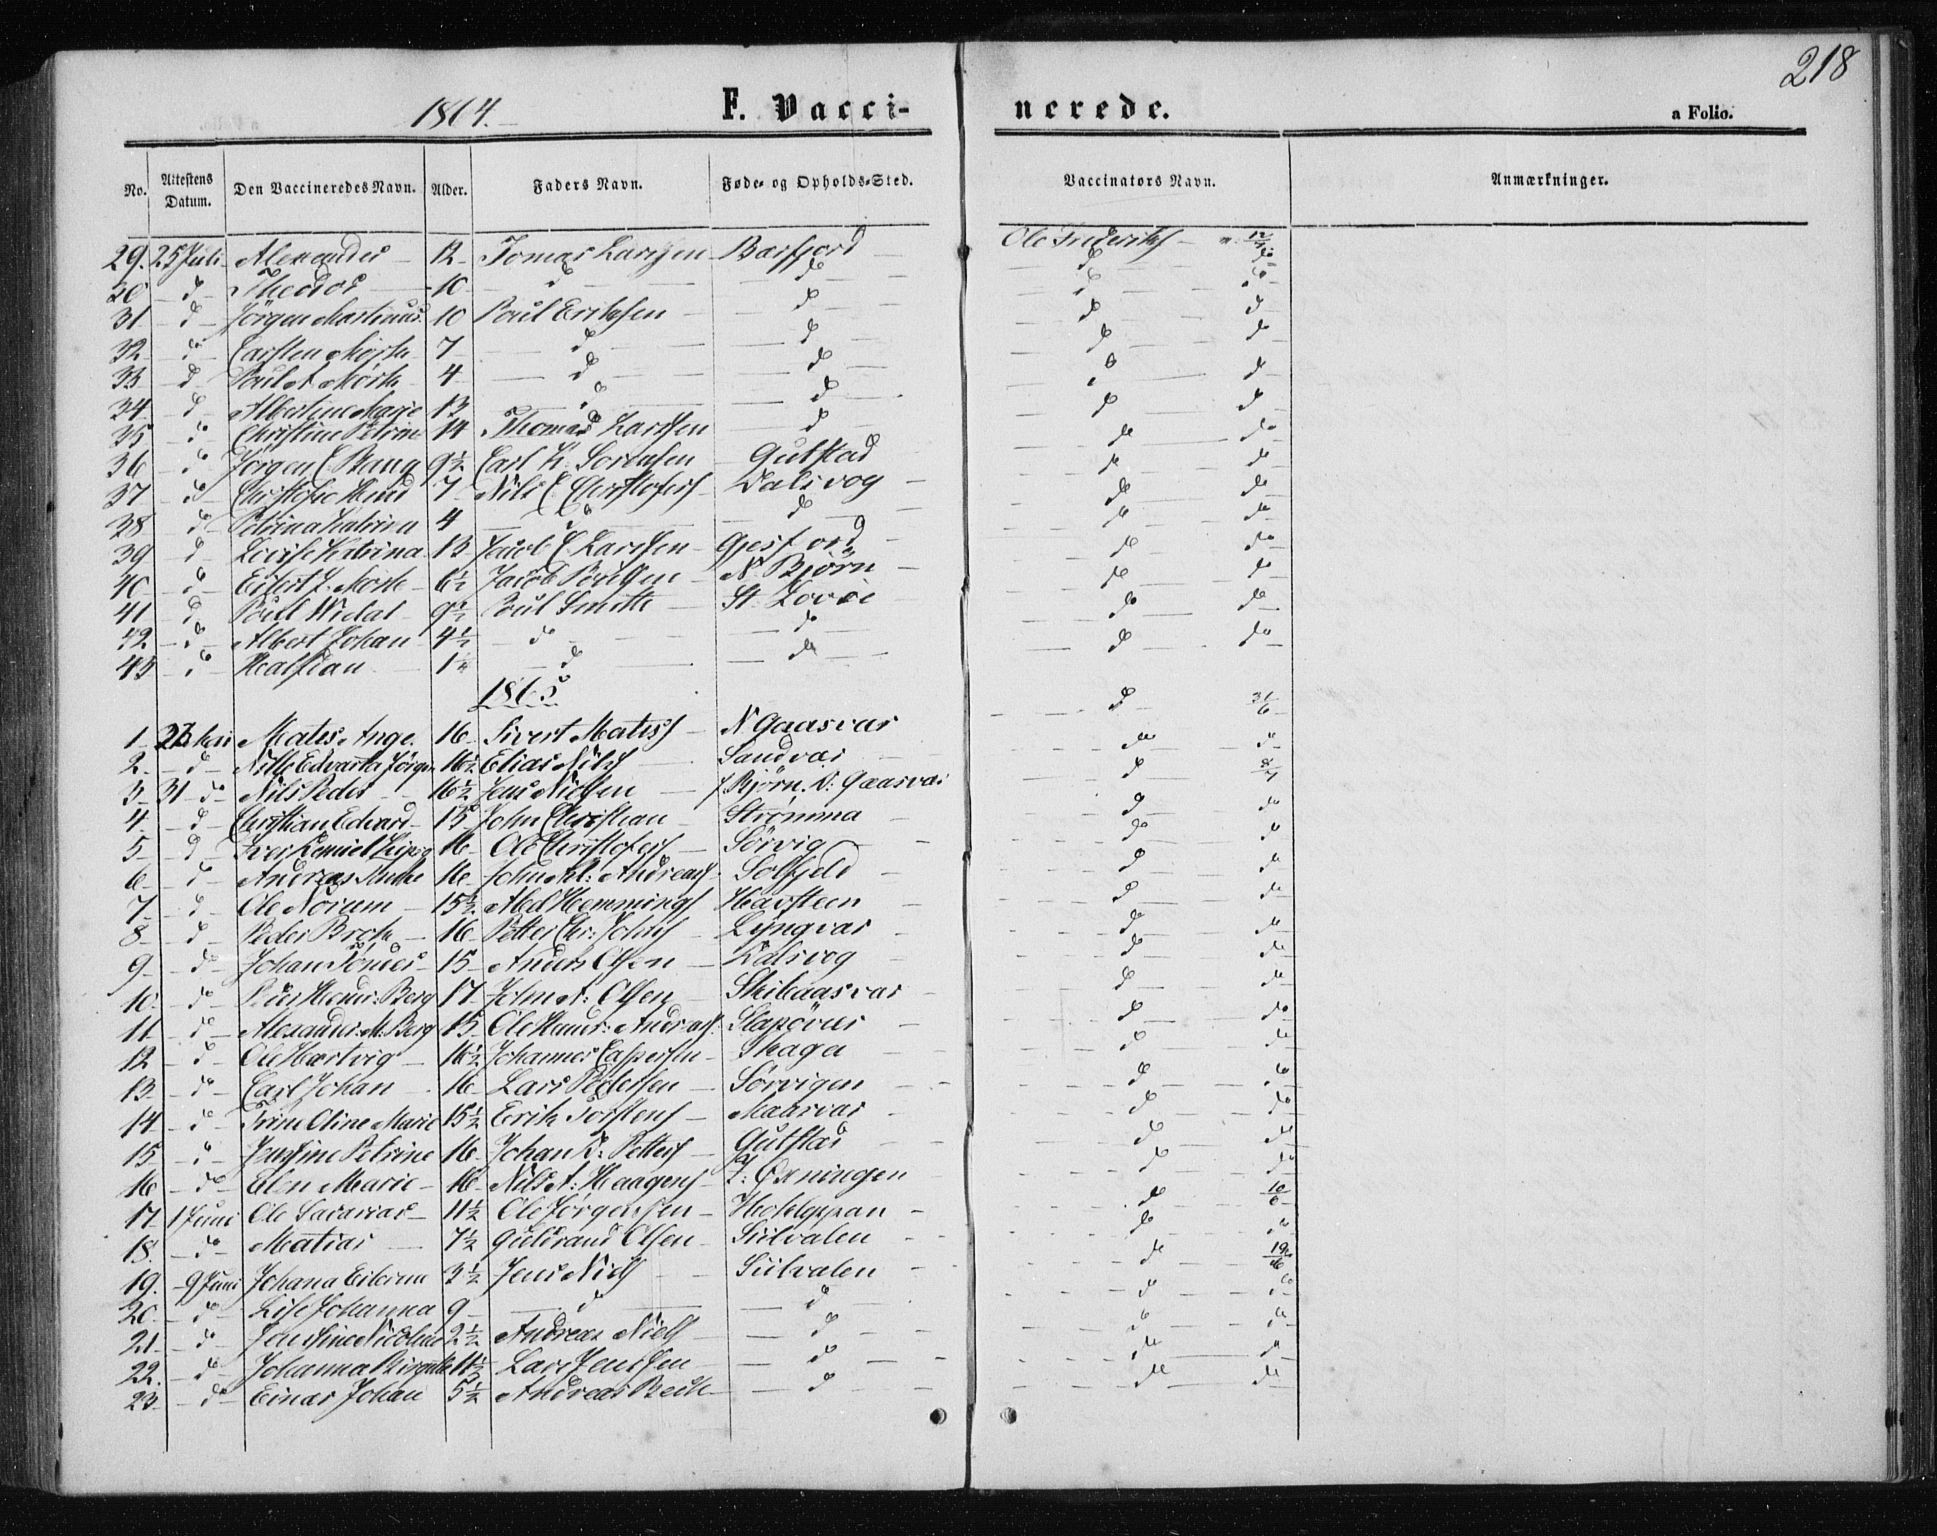 218
1864. F. Vacci- nerede. a Folio.
No. Attestens Datum. Den Vaccineredes Navn. Alder. Faders Navn. Føde- og Opholds-Sted. Vaccinators Navn. Anmærkninger.
29. 25 Juli Alexander 12 Tomas Larssen Barfjord Ole Frederiks 12/7
30 d Theodor 10 d d d do
31 d Jörgen Martinus 10 Poul Eriksen d d do
32 do Carsten Mörch 7 d d d d
33 d Poul A Mörch 4 d d d do
34 d Albertine Marie 13 d d d d
35 do Christine Petrine 14 Thomas Larssen d d do
36 d Jörgen C Bang 9½ Carl K. Sörensen Gutstad do do
37 do Christofer 7 Nils C Christofers Dalsvog do do
38 d Petrina Katrina 4 do d do do
39 d Lovise Katrina 13 Jacob C Larssen Gjesfjord do do
40 d Eilert J. Mörch 6½ Jacob N. Björn do do
41 d Poul Widal 9½ Poul Smith St. Lovöe do do
42 d Albert Johan 4½ do do do do
43 d Halfdan 1 d do d do
1865
1 Mai Mates Ange. 16 Sivert Matess N Gaasvær d 31/6
2. d Edvarta Jörgen 16½ Elias Nils Sandvær do do
3 31 do Nils Peder 16½ Jens Nielsen f Björn. d: Gaasvær d 8/7
4 d Christian Edvard 15 John Christian Strömma d do
5 d Iver 16 Ole Christofers Sörvig do d
6 d Andreas 16 John Andreas Solfjeld d d
7 d Ole Norum 15½ Abel Hemmings Havsteen d do
8 d Peder Broch 16 Petter Chr: Johns Lyngvær d do
9 do Johan 15 Anders Olsen Dalsvog d do
10 do Hendr: Berg 17 John A: Olsen Skibaasvær d do
11 do Alexander M: Berg 15 Ole Hendr: Andreas Slapöver d do
12 d Ole Hartvig 16½ Johannes Caspersen Skaga d do
13 do Carl Johan 16 Lars Pedersen Sörvigen d do
14 d Trine Oline Marie 15½ Erik Torstens Maasvær d do
15 d Jensine Petrine 16 Johan D: Petters Gutstad d do
16 do Elen Marie 16 Nils A: Haagens Y: Öxningen do do
17. 1 Juni Ole Sacarias 11½ Ole Jörgensen do 10/6
18. do Matias 7½ Guldrand Olsen Siilvalen do do
19. 9 Juni Johana 3½ Jens Niels Siilvalen do 19/6
20. do Lise Johanna 9 d d do do
21 do Jensine Nicoline 2½ Andreas Niels d do do
22. do Johanna Birgitte 11½ Lars Jenssen d do do
23. do Einar Johan 5½ Andreas d do do